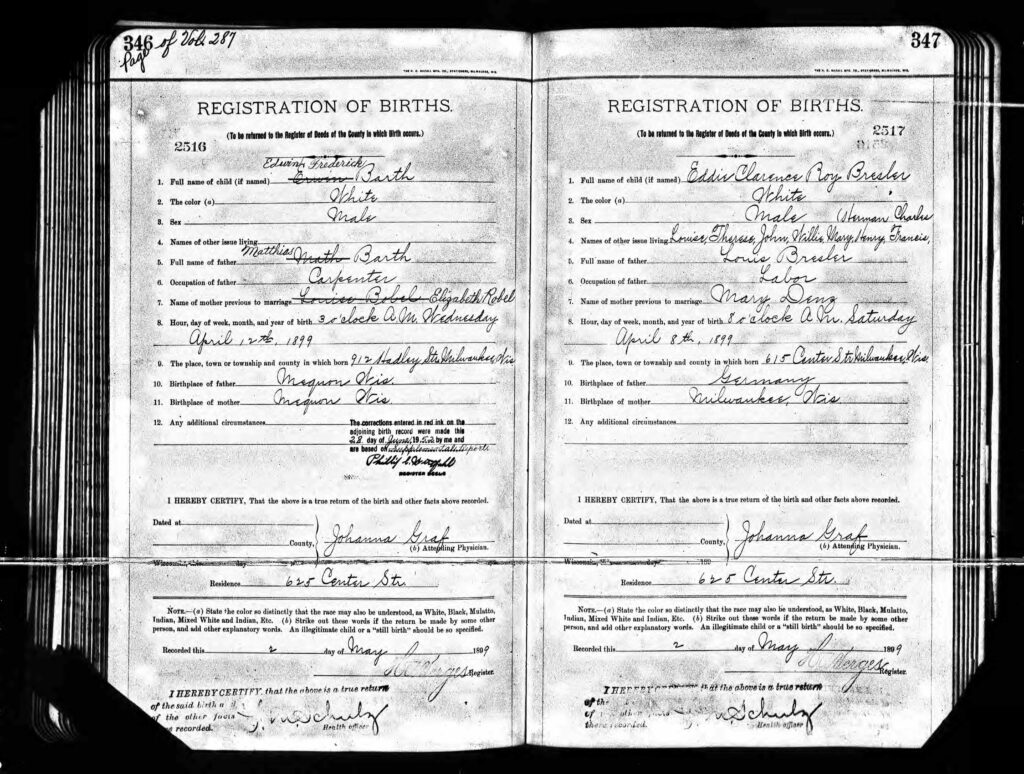 346 of Vol. 287
Page
THE H. H. WEST MFG. CO., STATIONERS, MILWAUKEE, WIS.
REGISTRATION OF BIRTHS.
(To be returned to the Register of Deeds of the County in which Birth occurs.)
2516
Edwin Frederick
1. Full name of child (if named) Erwin Barth
2. The color (a) White
3. Sex Male
4. Names of other issue living
Matthias
5. Full name of father Math Barth
6. Occupation of father Carpenter
7. Name of mother previous to marriage Louise Bobel Elizabeth Robel
8. Hour, day of week, month, and year of birth 3 o'clock A.M. Wednesday
April 12th, 1899
9. The place, town or township and county in which born 912 Hadley Str. Milwaukee, Wis
10. Birthplace of father Mequon Wis.
11. Birthplace of mother Mequon Wis.
12. Any additional circumstances
The corrections entered in red ink on the
adjoining birth record were made this
28 day of June, 1952 by me and
are based on supplemental reports
REGISTER DEEDS
I HEREBY CERTIFY, That the above is a true return of the birth and other facts above recorded.
Dated at
County, Johanna Graf
(b) Attending Physician.
Wisconsin, day
Residence 625 Center Str.
NOTE.—(a) State the color so distinctly that the race may also be understood, as White, Black, Mulatto,
Indian, Mixed White and Indian, Etc. (b) Strike out these words if the return be made by some other
person, and add other explanatory words. An illegitimate child or a "still birth" should be so specified.
Recorded this 2 day of May 1899
Register.
I HEREBY CERTIFY, that the above is a true return
of the said birth a
of the other facts
e recorded. Health officer
347
REGISTRATION OF BIRTHS.
(To be returned to the Register of Deeds of the County in which Birth occurs.)
2517
1. Full name of child (if named) Eddie Clarence Roy Bresler
2. The color (a) White
3. Sex Male Herman Charles
4. Names of other issue living Louise, Therese, John, Willie, Mary, Henry, Francis,
5. Full name of father Louis Bresler
6. Occupation of father Labor
7. Name of mother previous to marriage Mary Denz
8. Hour, day of week, month, and year of birth 8 o'clock A.M. Saturday
April 8th, 1899
9. The place, town or township and county in which born 615 Center Str. Milwaukee, Wis.
10. Birthplace of father Germany
11. Birthplace of mother Milwaukee, Wis
12. Any additional circumstances
I HEREBY CERTIFY, That the above is a true return of the birth and other facts above recorded.
Dated at
County, Johanna Graf
(b) Attending Physician.
Wisconsin, 189
Residence 625 Center Str.
NOTE.—(a) State the color so distinctly that the race may also be understood, as White, Black, Mulatto,
Indian, Mixed White and Indian, Etc. (b) Strike out these words if the return be made by some other
person, and add other explanatory words. An illegitimate child or a "still birth" should be so specified.
Recorded this 2 day of May 1899
Register.
I HEREBY that the above is a true return
of the
of other facts
there recorded. Health officer